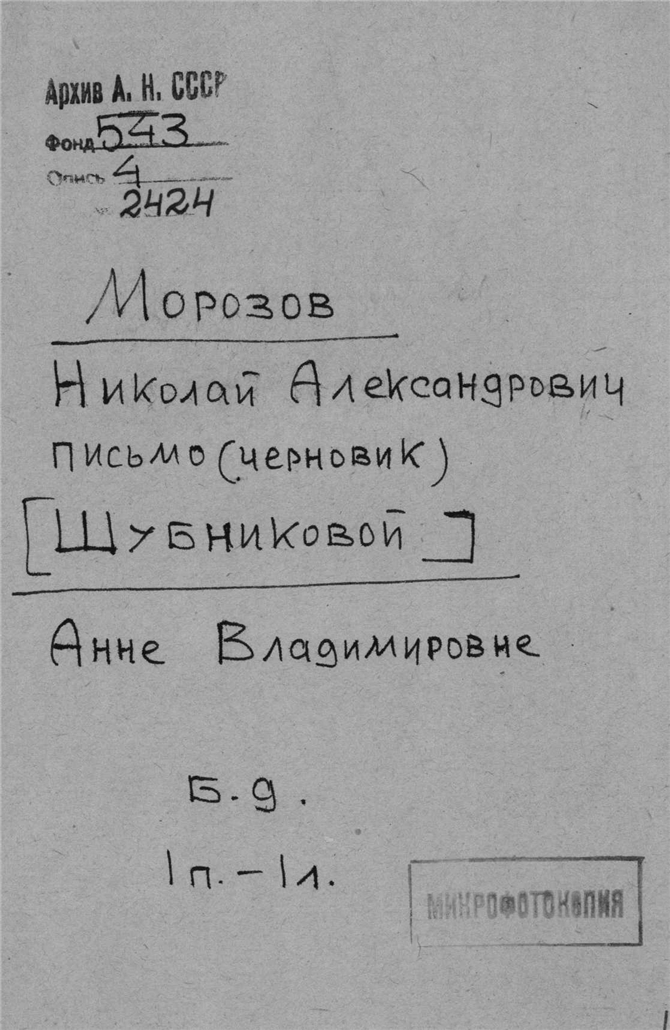 Архив А. Н. СССР
Фонд 543
Опись 4
№ 2424
Морозов
Николай Александрович
письмо (черновик)
[Шубниковой]
Анне Владимировне
Б.д.
1п.-1л.
МИКРОФОТОКОПИЯ